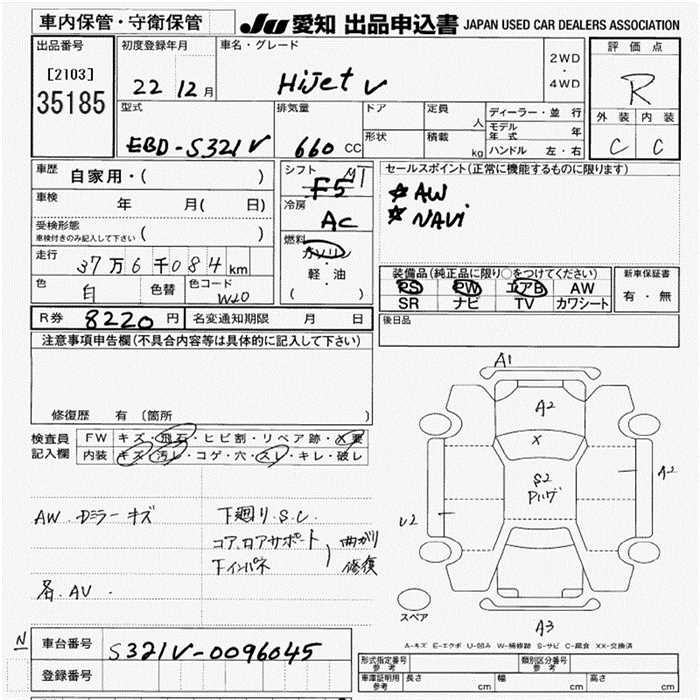 車内保管・守衛保管
JU 愛知 出品申込書 JAPAN USED CAR DEALERS ASSOCIATION
出品番号
[2103]
35185
初度登録年月
22 12月
車名・グレード
HiJet V
2WD
・
4WD
評価点
R
外装 内装
C C
型式
EBD-S321V
排気量
660 CC
ドア
形状
定員
人
積載
kg
ディーラー・並行
モデル年式 年
ハンドル 左・右
車歴
自家用・( )
車検
年 月( 日)
受検形態
車検付きのみ記入して下さい ( )
走行
37万6千084km
色
白
色替
色コード
W20
シフト
F5
冷房
AC
燃料
ガソリン
・
軽・油
( )
セールスポイント(正常に機能するものに限ります)
☆ AW
☆ NAVi
装備品(純正品に限り○をつけてください)
PS PW エアB AW
SR ナビ TV カワシート
新車保証書
有・無
R券 8220円
名変通知期限 月 日
後日品
注意事項申告欄(不具合内容等は具体的に記入して下さい)
修復歴 有 (箇所 )
検査員
記入欄
FW キズ・飛石・ヒビ割・リペア跡・X要
内装 キズ・汚レ・コゲ・穴・スレ・キレ・破レ
AW ミラー キズ
各.AV
下廻り.S.C
コア.ロアサポート
下インパネ
曲がり
修復
A1
A2
X
S2
Pハゲ
A2
U2
スペア
A3
A-キズ E-エクボ U-凹み W-補修跡 S-サビ C-腐食 XX-交換済
N
車台番号
S321V-0096045
登録番号
形式指定番号
参考
類別区分番号
参考
車庫証明用
参考
長さ cm
幅 cm
高さ cm